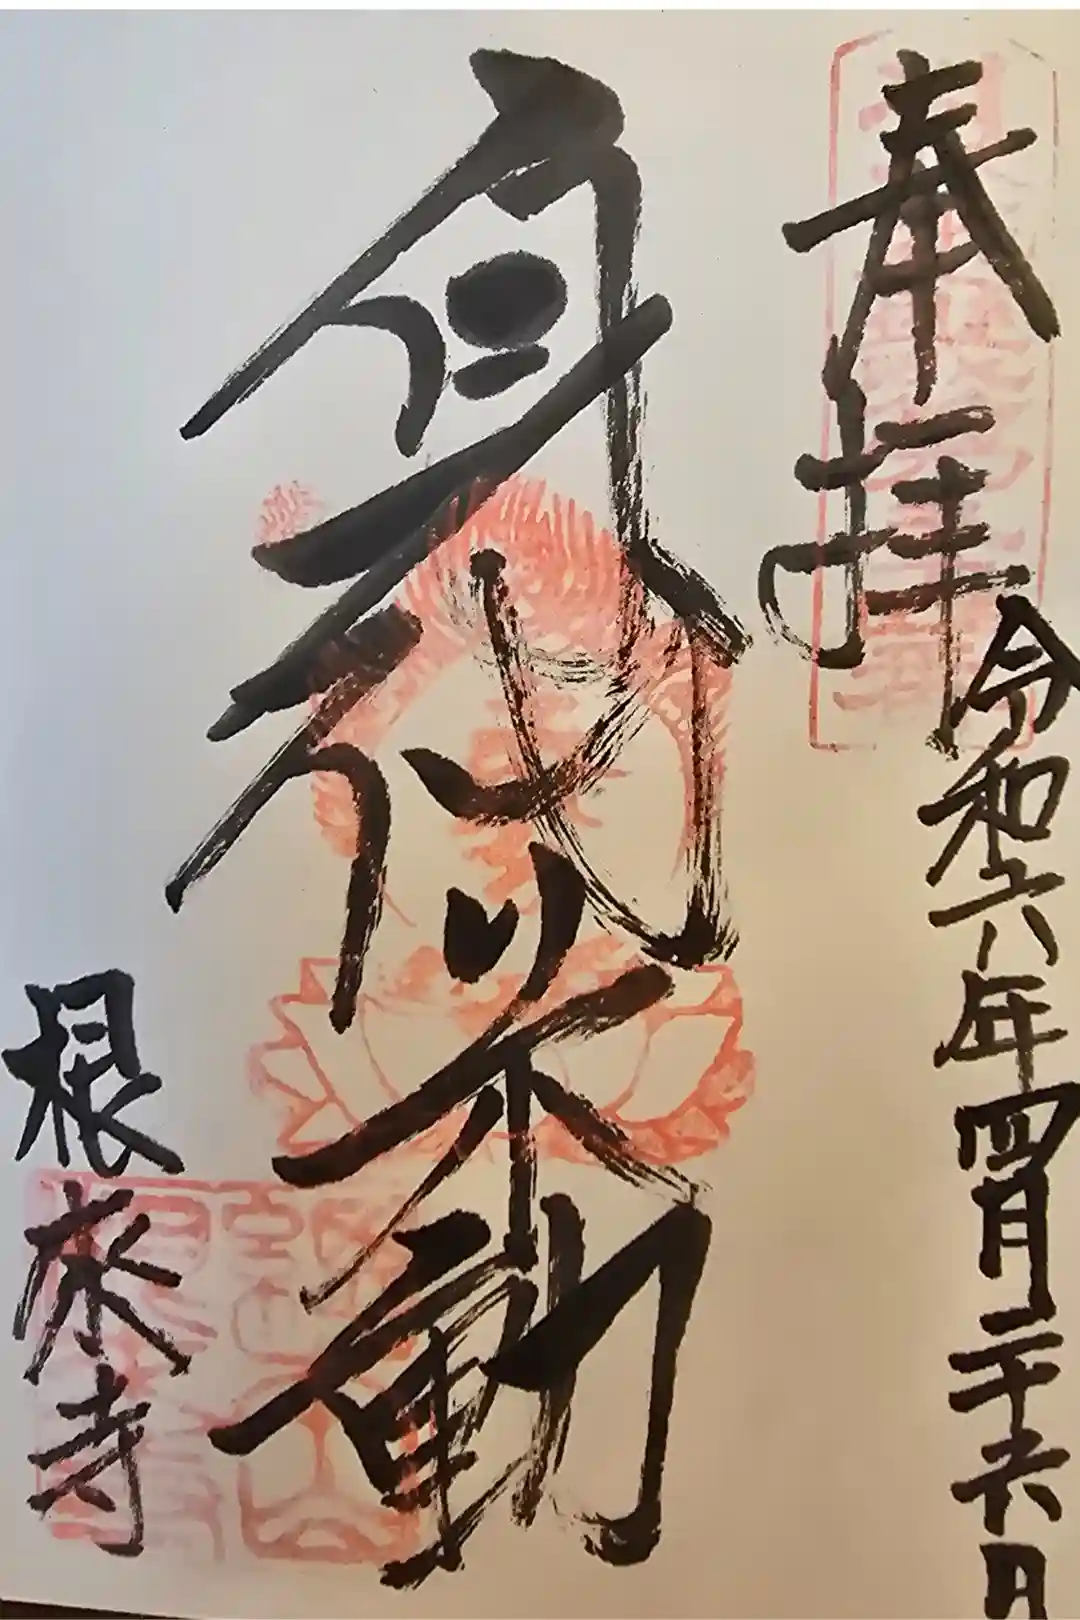 奉拝
令和六年四月二十六日
身代不動
根来寺